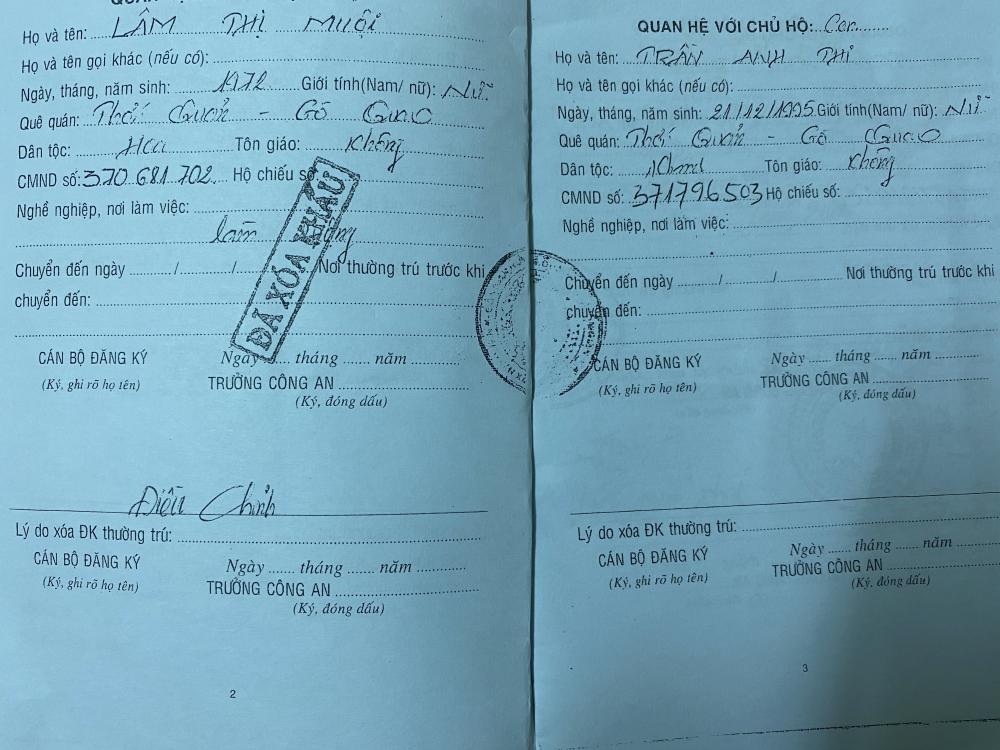 Họ và tên: LÂM THỊ MUỘI
Họ và tên gọi khác (nếu có):
Ngày, tháng, năm sinh: 1972 Giới tính(Nam/ nữ): Nữ
Quê quán: Thới Quản - Gò Quao
Dân tộc: Hoa Tôn giáo: Không
CMND số: 370 681 702 Hộ chiếu số
Nghề nghiệp, nơi làm việc:
làm
Chuyển đến ngày ......./......./....... Nơi thường trú trước khi
chuyển đến:
ĐÃ XÓA KHẨU
CÁN BỘ ĐĂNG KÝ Ngày ....... tháng ....... năm
(Ký, ghi rõ họ tên) TRƯỞNG CÔNG AN
(Ký, đóng dấu)
Điều Chỉnh
Lý do xóa ĐK thường trú:
CÁN BỘ ĐĂNG KÝ Ngày ....... tháng ....... năm
(Ký, ghi rõ họ tên) TRƯỞNG CÔNG AN
(Ký, đóng dấu)
2
QUAN HỆ VỚI CHỦ HỘ: Con
Họ và tên: TRẦN ANH THI
Họ và tên gọi khác (nếu có):
Ngày, tháng, năm sinh: 21/12/1995 Giới tính(Nam/ nữ): Nữ
Quê quán: Thới Quản - Gò Quao
Dân tộc: Tôn giáo: Không
CMND số: 371796503 Hộ chiếu số:
Nghề nghiệp, nơi làm việc:
Chuyển đến ngày ......./......./....... Nơi thường trú trước khi
chuyển đến:
CÁN BỘ ĐĂNG KÝ Ngày ....... tháng ....... năm
(Ký, ghi rõ họ tên) TRƯỞNG CÔNG AN
(Ký, đóng dấu)
Lý do xóa ĐK thường trú:
CÁN BỘ ĐĂNG KÝ Ngày ....... tháng ....... năm
(Ký, ghi rõ họ tên) TRƯỞNG CÔNG AN
(Ký, đóng dấu)
3